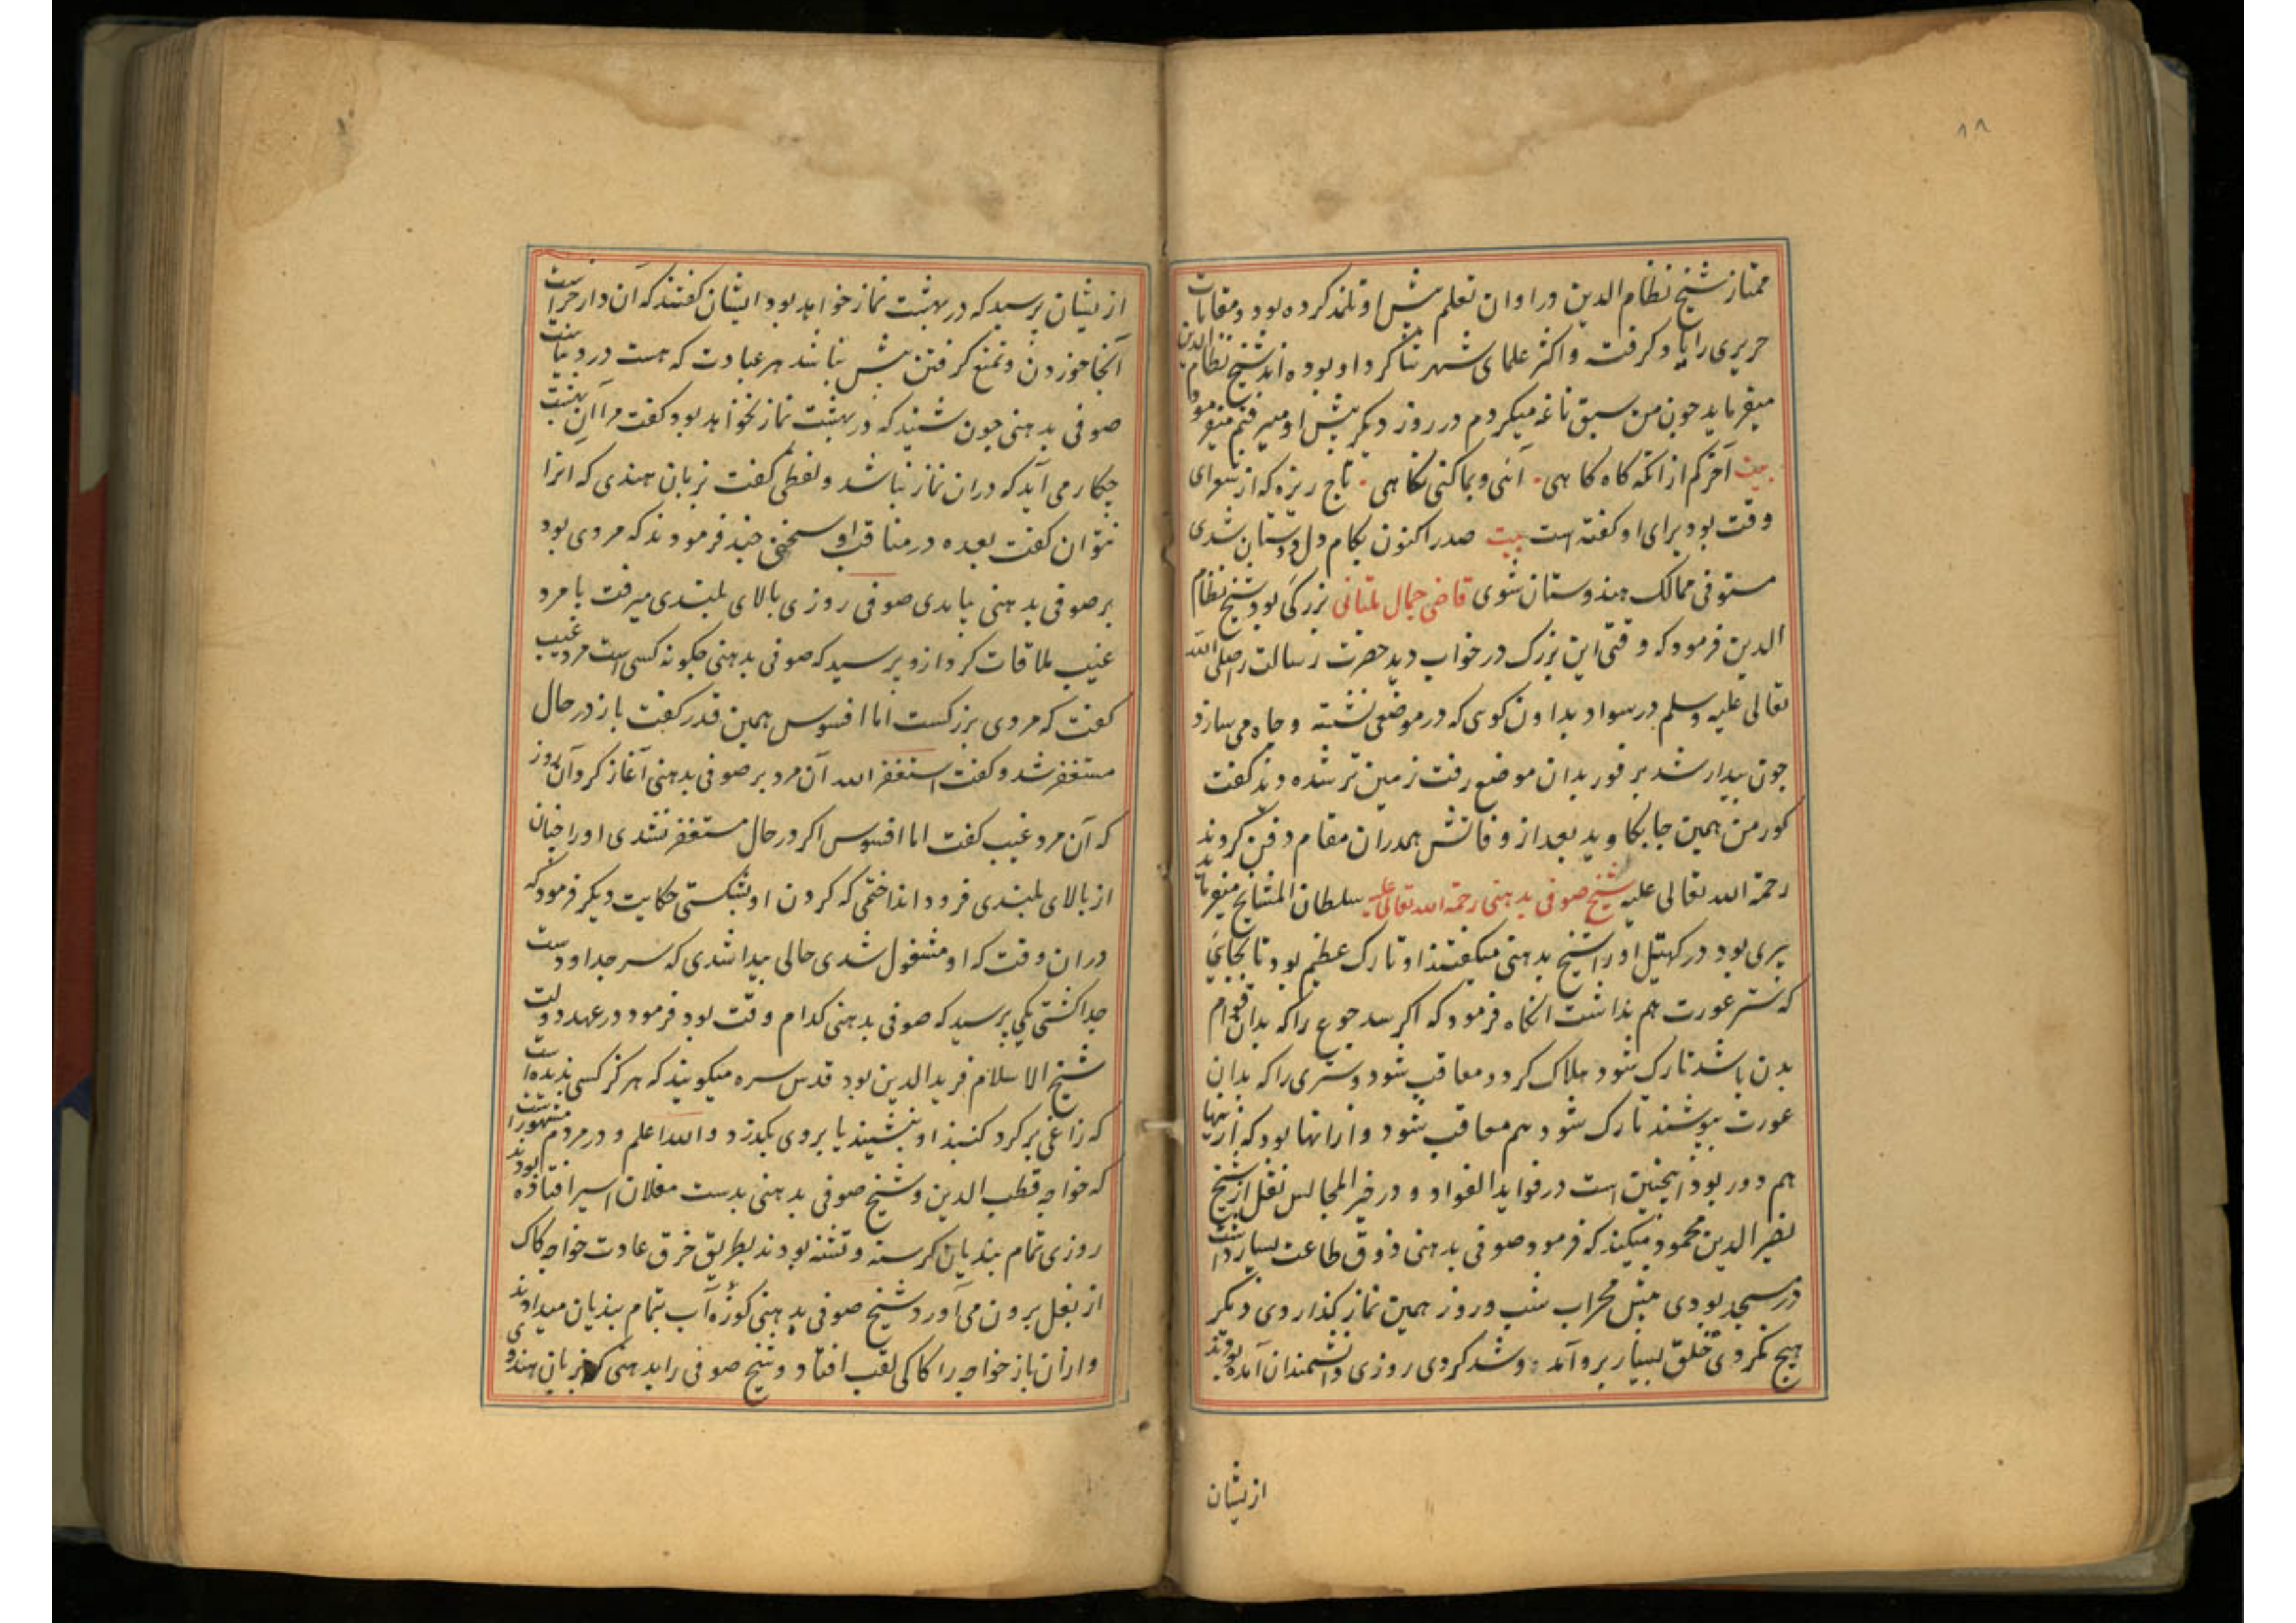 ۸۸
ممتاز شیخ نظام الدین در اوان تعلم پیش او تلمذ کرده بود و مقامات
حریری را یاد گرفت و اکثر علمای شهر شاگرد او بوده اند شیخ نظام الدین
میفرماید چون من سبق ناغه میکردم در روز دیگر پیش او میرفتم میفرمود
بیت آخر کم از انکه گاه گاهی آئی و بما کنی نگاهی تاج ریزه که از شعرای
وقت بود برای او گفته است بیت صدرا کنون بکام دل دوستان شدی
مستوفی ممالک هندوستان شوی قاضی جمال ملتانی بزرگی بود شیخ نظام
الدین فرمود که وقتی این بزرگ در خواب دید حضرت رسالت را صلی الله
تعالی علیه وسلم در سواد بداون کوئی که در موضعی نشسته و جاه می سازد
جون بیدار شد بر فور بدان موضع رفت زمین تر شده دید گفت
کور من همین جا بکاوید بعد از وفاتش همدران مقام دفن کردند
رحمة الله تعالی علیه شیخ صوفی بدهنی رحمة الله تعالی علیه سلطان المشایخ میفرماید
پیری بود در کهتیل او را شیخ بدهنی میگفتند او تارک عظیم بود تا بجایی
که ستر عورت هم نداشت انکاه فرمود که اگر سد جوع را که بدان قوام
بدن باشد تارک شود هلاک گردد معاقب شود و ستری را که بدان
عورت بپوشند تارک شود هم معاقب شود و از انها بود که ازینها
هم دور بود اینچنین است در فواید الفواد و در خیر المجالس نقل از شیخ
نصیر الدین محمود میکند که فرمود صوفی بدهنی ذوق طاعت بسیار داشت
در مسجد بودی پیش محراب شب و روز همین نماز گذاردی دیگر
هیچ نکردی خلق بسیار برو آمد و شد کردی روزی دانشمندان آمده بودند
از یشان
از یشان پرسید که در بهشت نماز خواهد بود ایشان گفتند که آن دار جزا است
آنجا خوردن و تمتع گرفتن بیش نباشد هر عبادت که هست در دنیا ست
صوفی بدهنی جون شنید که در بهشت نماز نخواهد بود گفت مرا آن بهشت
چکار می آید که دران نماز نباشد و لفظی گفت بزبان هندی که انرا
نتوان گفت بعده در مناقب او سخنی چند فرمودند که مردی بود
بر صوفی بدهنی بامدی صوفی روزی بالای بلندی میرفت با مرد
غیب ملاقات کرد ازو پرسید که صوفی بدهنی چکونه کسی است مرد غیب
گفت که مردی بزرکست اما افسوس همین قدر گفت باز در حال
مستغفر شد و گفت استغفر الله آن مرد بر صوفی بدهنی آغاز کرد آن روز
که آن مرد غیب گفت اما افسوس اکر در حال مستغفر نشدی او را چنان
از بالای بلندی فرود انداختمی که کردن او بشکستی حکایت دیگر فرمود که
دران وقت که او مشغول شدی حالی پیدا شدی که سر جدا و دست
جدا کشتی یکی پرسید که صوفی بدهنی کدام وقت بود فرمود در عهد دولت
شیخ الاسلام فرید الدین بود قدس سره میگویند که هرگز کسی ندیده است
که زاغی بر گرد گنبد او بنشیند یا بروی بگذرد والله اعلم و در مردم مشهور است
که خواجه قطب الدین و شیخ صوفی بدهنی بدست مغلان اسیر افتاده بودند
روزی تمام بندیان گرسنه و تشنه بودند بطریق خرق عادت خواجه کاک
از بغل برون می آورد و شیخ صوفی بدهنی کوزه آب بتمام بندیان میدادند
و ازان باز خواجه را کاکی لقب افتاد و شیخ صوفی را بدهنی که بزبان هندوی